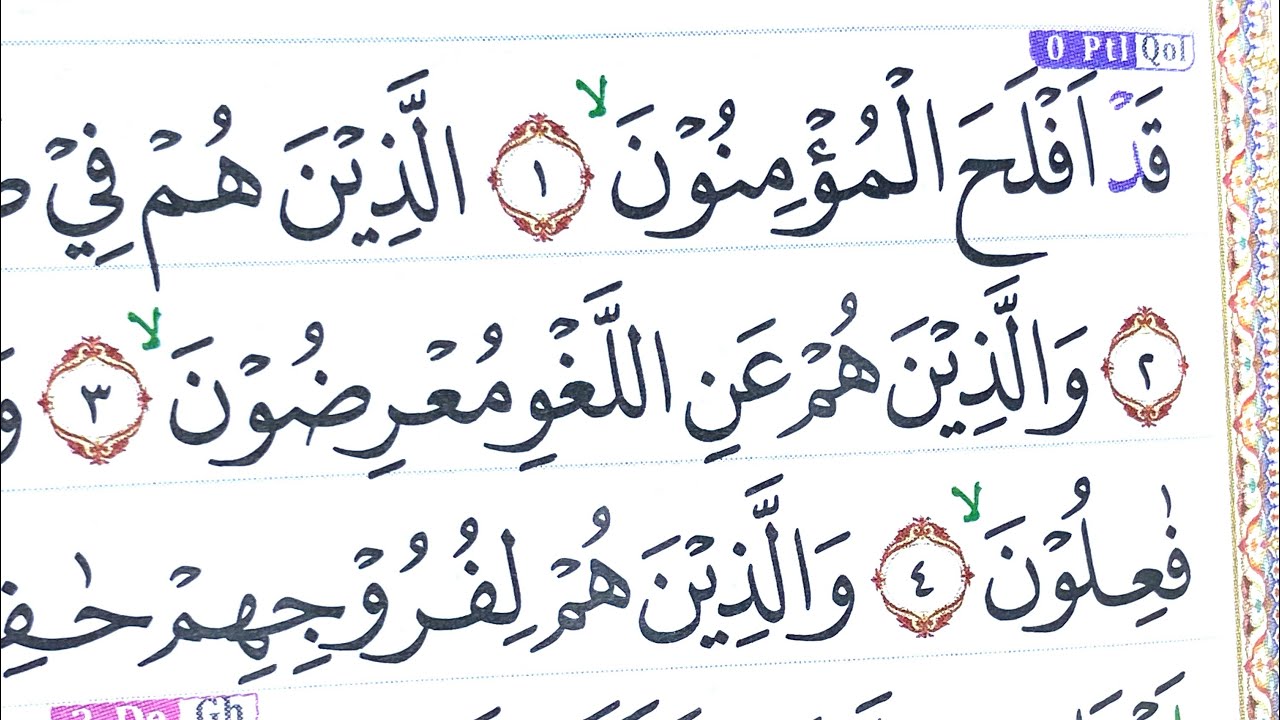 0 Ptl Qol
قَدْ اَفْلَحَ الْمُؤْمِنُوْنَ ۙ ١ الَّذِيْنَ هُمْ فِيْ
٢ وَالَّذِيْنَ هُمْ عَنِ اللَّغْوِ مُعْرِضُوْنَ ۙ ٣
فٰعِلُوْنَ ۙ ٤ وَالَّذِيْنَ هُمْ لِفُرُوْجِهِمْ